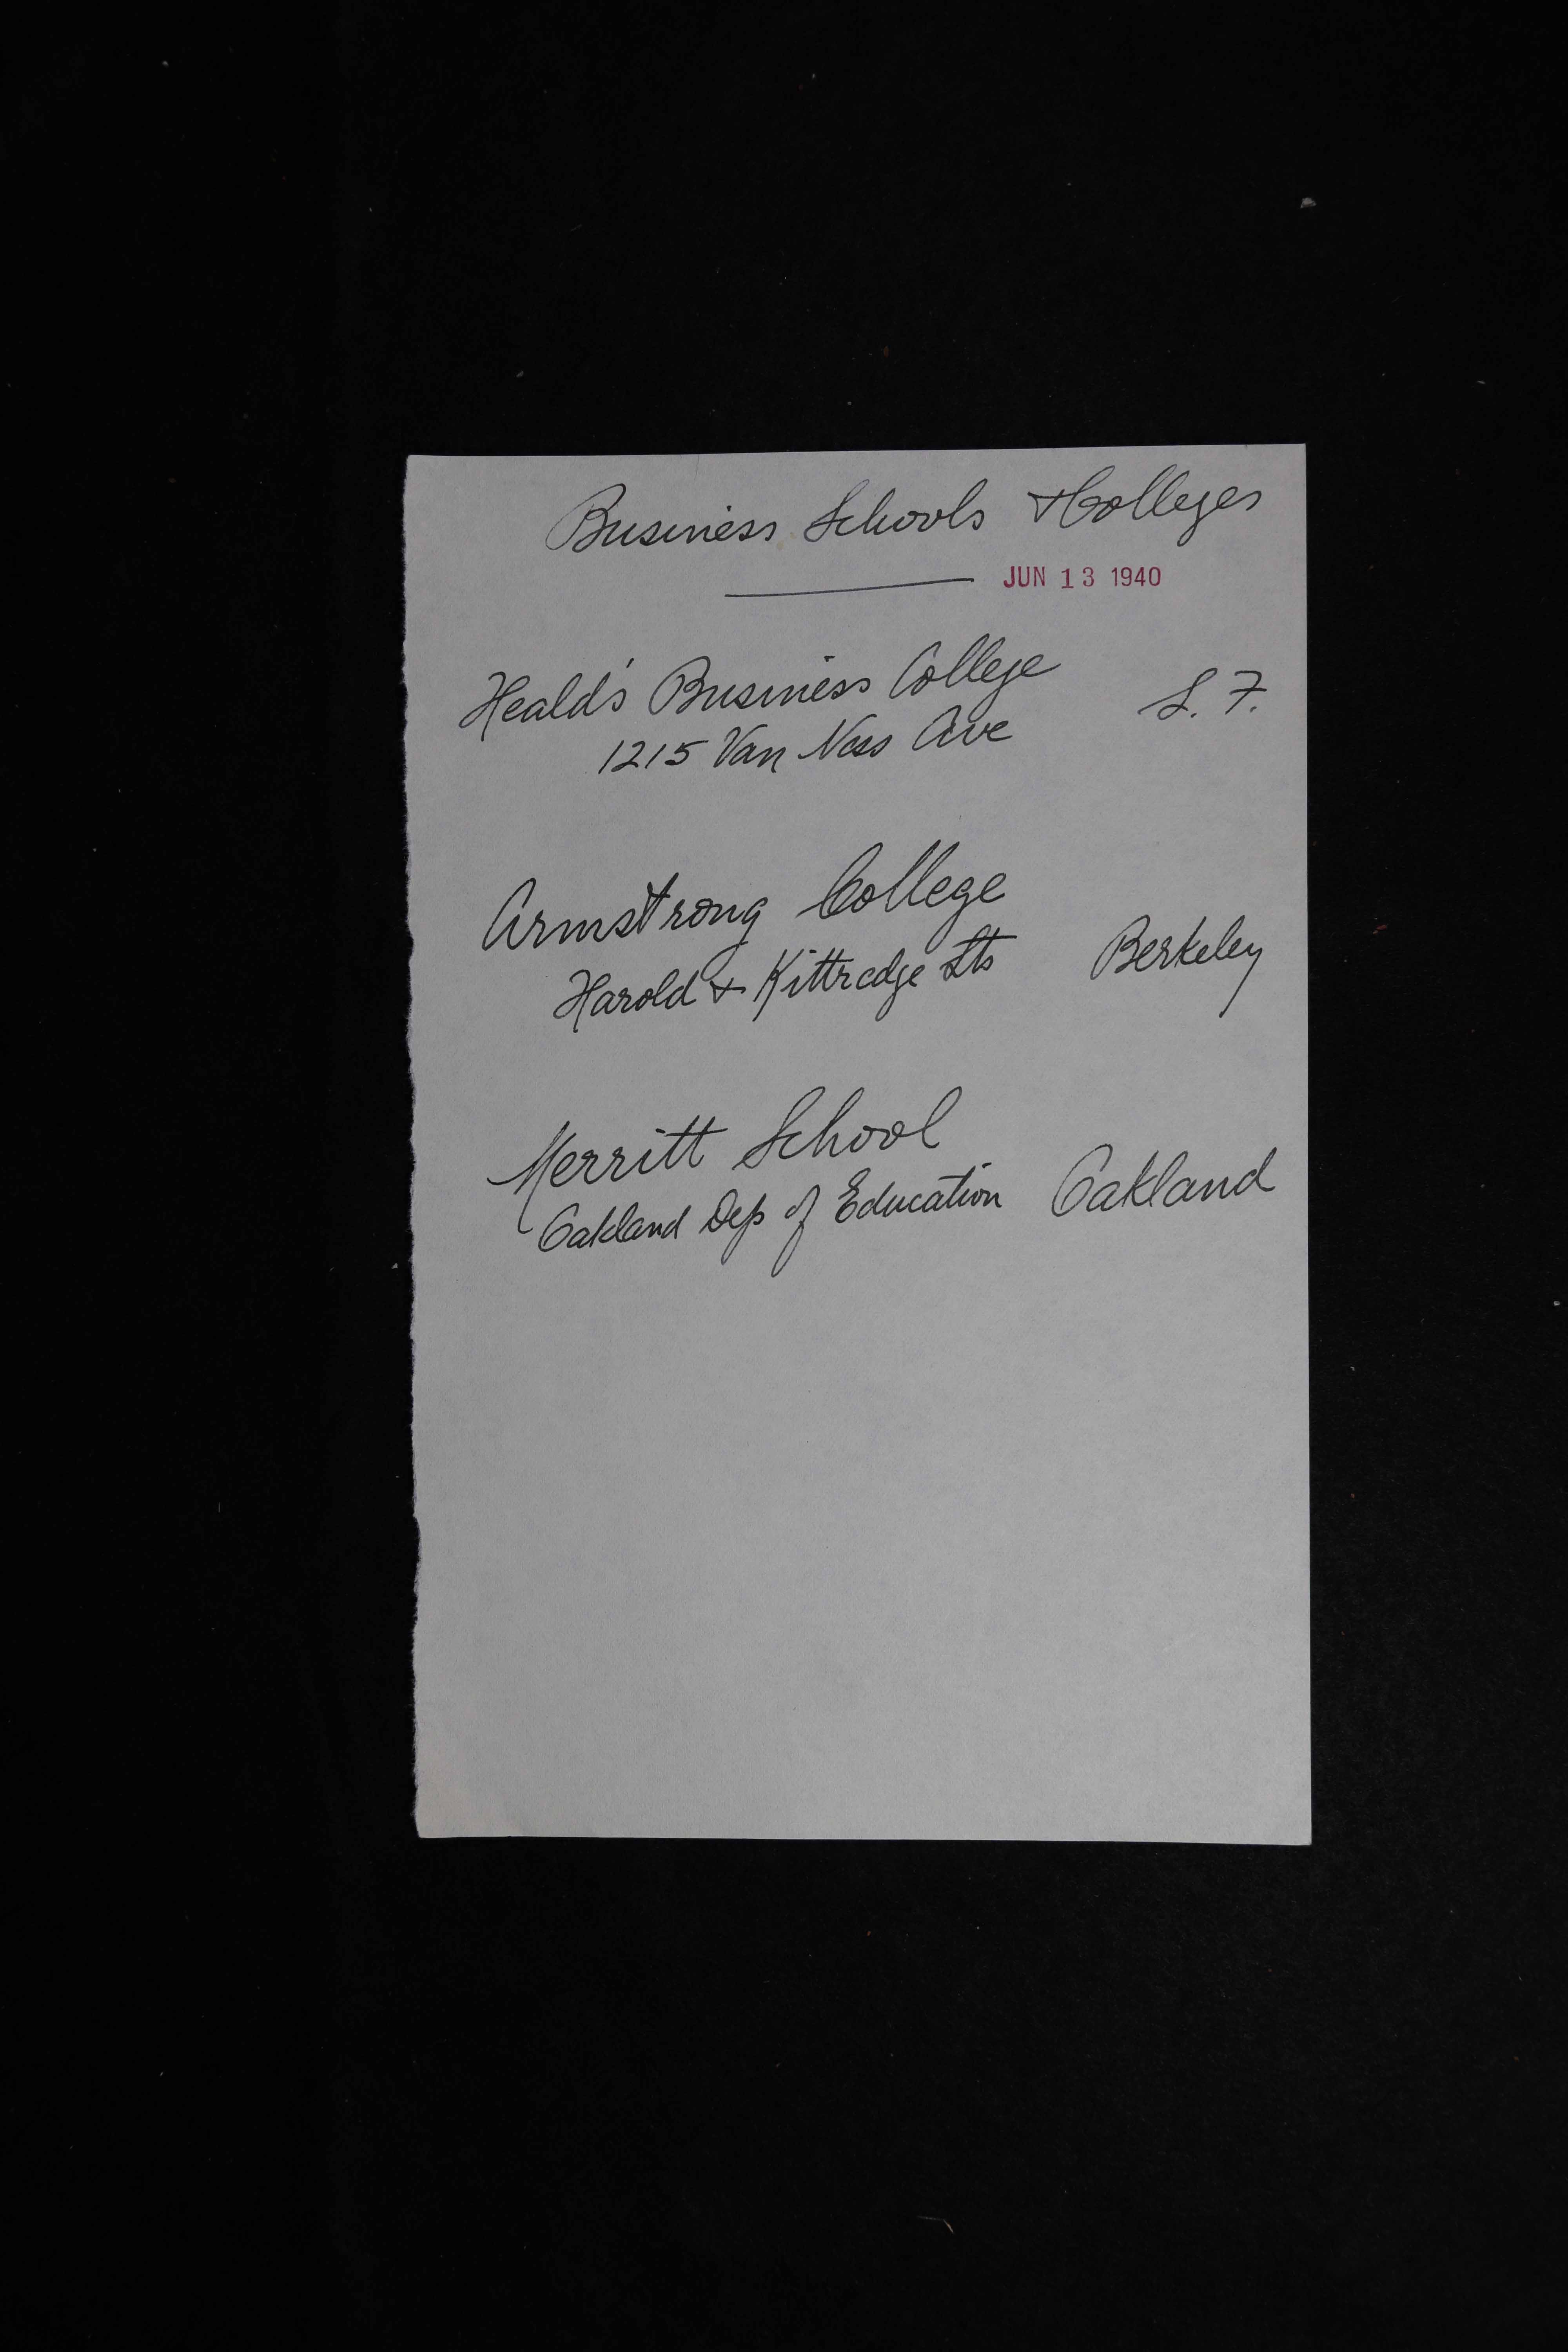 Business Schools & Colleges
JUN 13 1940
Heald's Business College
S. F.
1215 Van Ness Ave
Armstrong College
Harold & Kittredge Sts Berkeley
Merritt School
Oakland Dep of Education Oakland